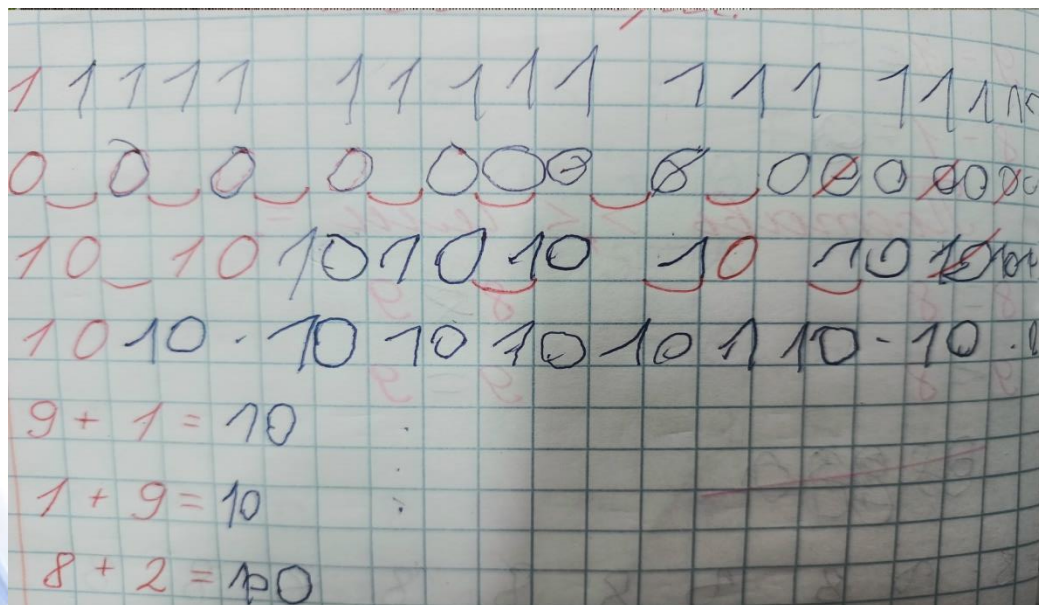 1 1 1 1 1 1 1 1 1 1 1 1 1 1 1 1 1
0 0 0 0 0 0 0 0 0 0 0 0 0
10 10 10 10 10 10 10 10
10 10 · 10 10 10 10 1 10 - 10 ·
9 + 1 = 10
1 + 9 = 10
8 + 2 = 10